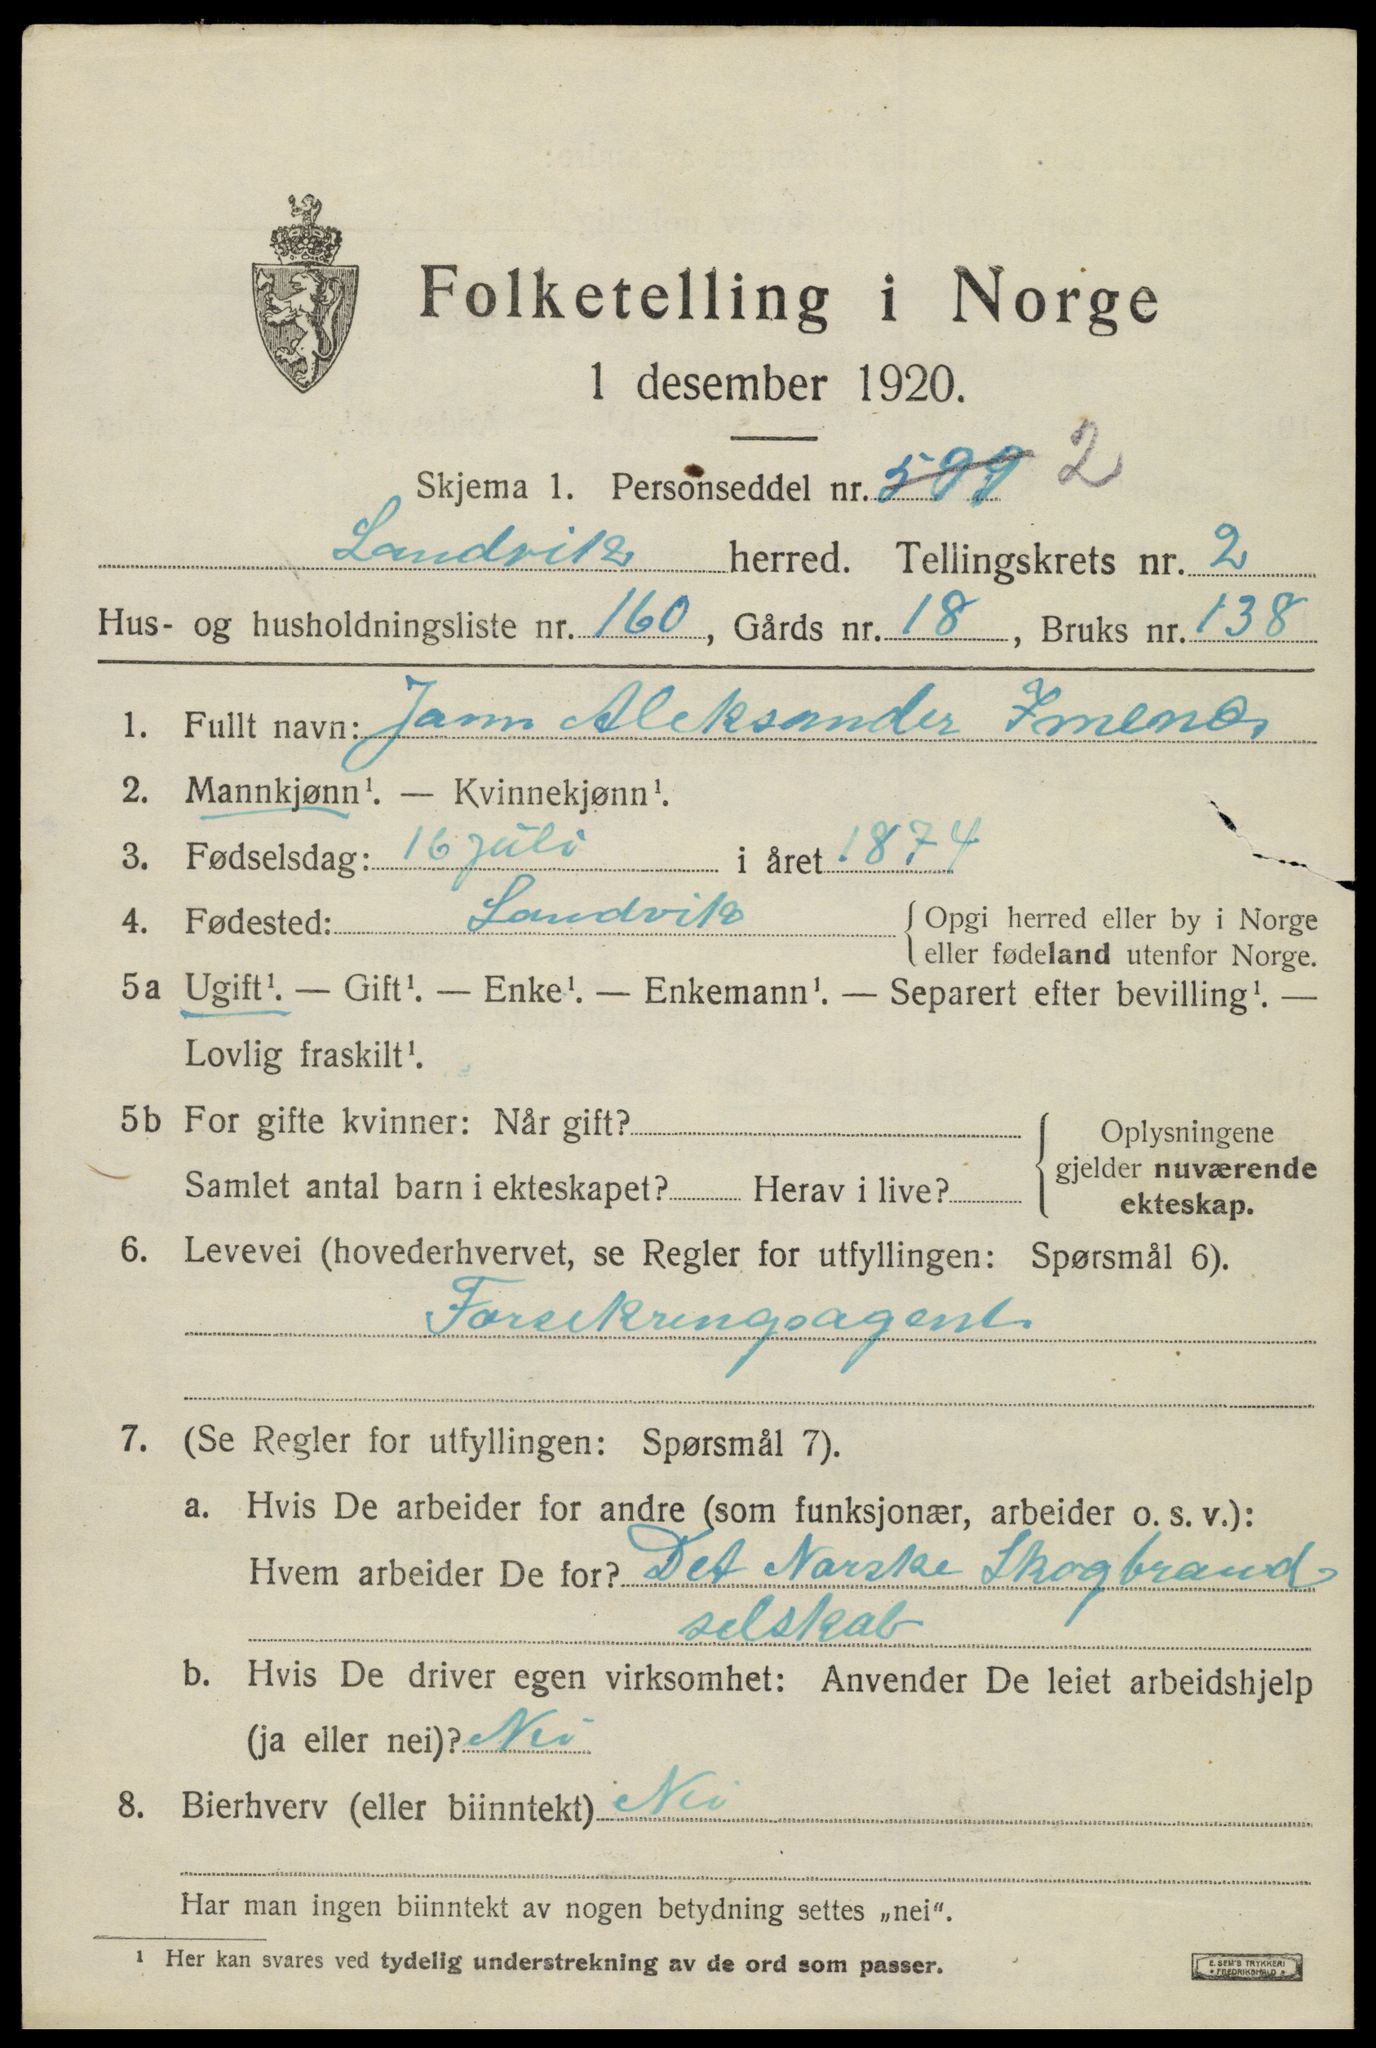 Folketelling i Norge
1 desember 1920.
Skjema 1. Personseddel nr. 599 2
Landvik herred. Tellingskrets nr. 2
Hus- og husholdningsliste nr. 160, Gårds nr. 18, Bruks nr. 138
1. Fullt navn: Jann Aleksander Imenes
2. Mannkjønn¹. — Kvinnekjønn¹.
3. Fødselsdag: 16 juli i året 1874
4. Fødested: Landvik {Opgi herred eller by i Norge
eller fødeland utenfor Norge.
5a Ugift¹. — Gift¹. — Enke¹. — Enkemann¹. — Separert efter bevilling¹. —
Lovlig fraskilt¹.
5b For gifte kvinner: Når gift?
Samlet antal barn i ekteskapet? Herav i live?
Oplysningene
gjelder nuværende
ekteskap.
6. Levevei (hovederhvervet, se Regler for utfyllingen: Spørsmål 6).
Forsekringsagent
7. (Se Regler for utfyllingen: Spørsmål 7).
a. Hvis De arbeider for andre (som funksjonær, arbeider o. s. v.):
Hvem arbeider De for? Det Norske Skogbrand
selskab
b. Hvis De driver egen virksomhet: Anvender De leiet arbeidshjelp
(ja eller nei)? Nei
8. Bierhverv (eller biinntekt) Nei
Har man ingen biinntekt av nogen betydning settes „nei".
¹ Her kan svares ved tydelig understrekning av de ord som passer.
E. SEM'S TRYKKERI
• FREDRIKSHALD •